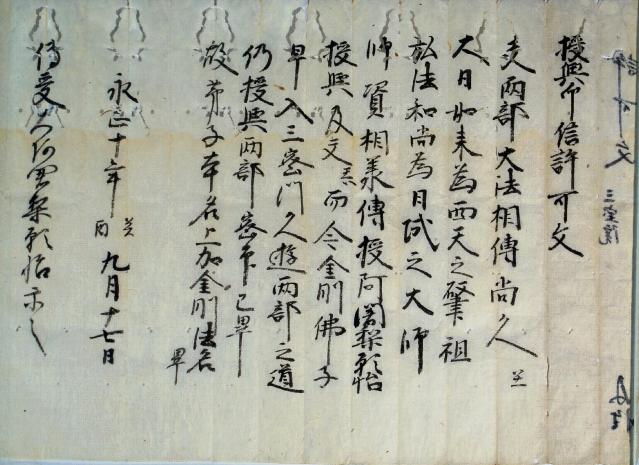 授與印信許可文
夫両部大法相傳尚久
大日如来為西天之肇祖
弘法和尚為日域之大師
師資相承傳授阿闍梨
授與及文而今金剛佛子
早入三密門久遊両部之道
仍授與両部密印已畢
故弟子本名上加金剛法名畢
永正十年 癸酉 九月十七日
傳受人阿闍梨
三宝院